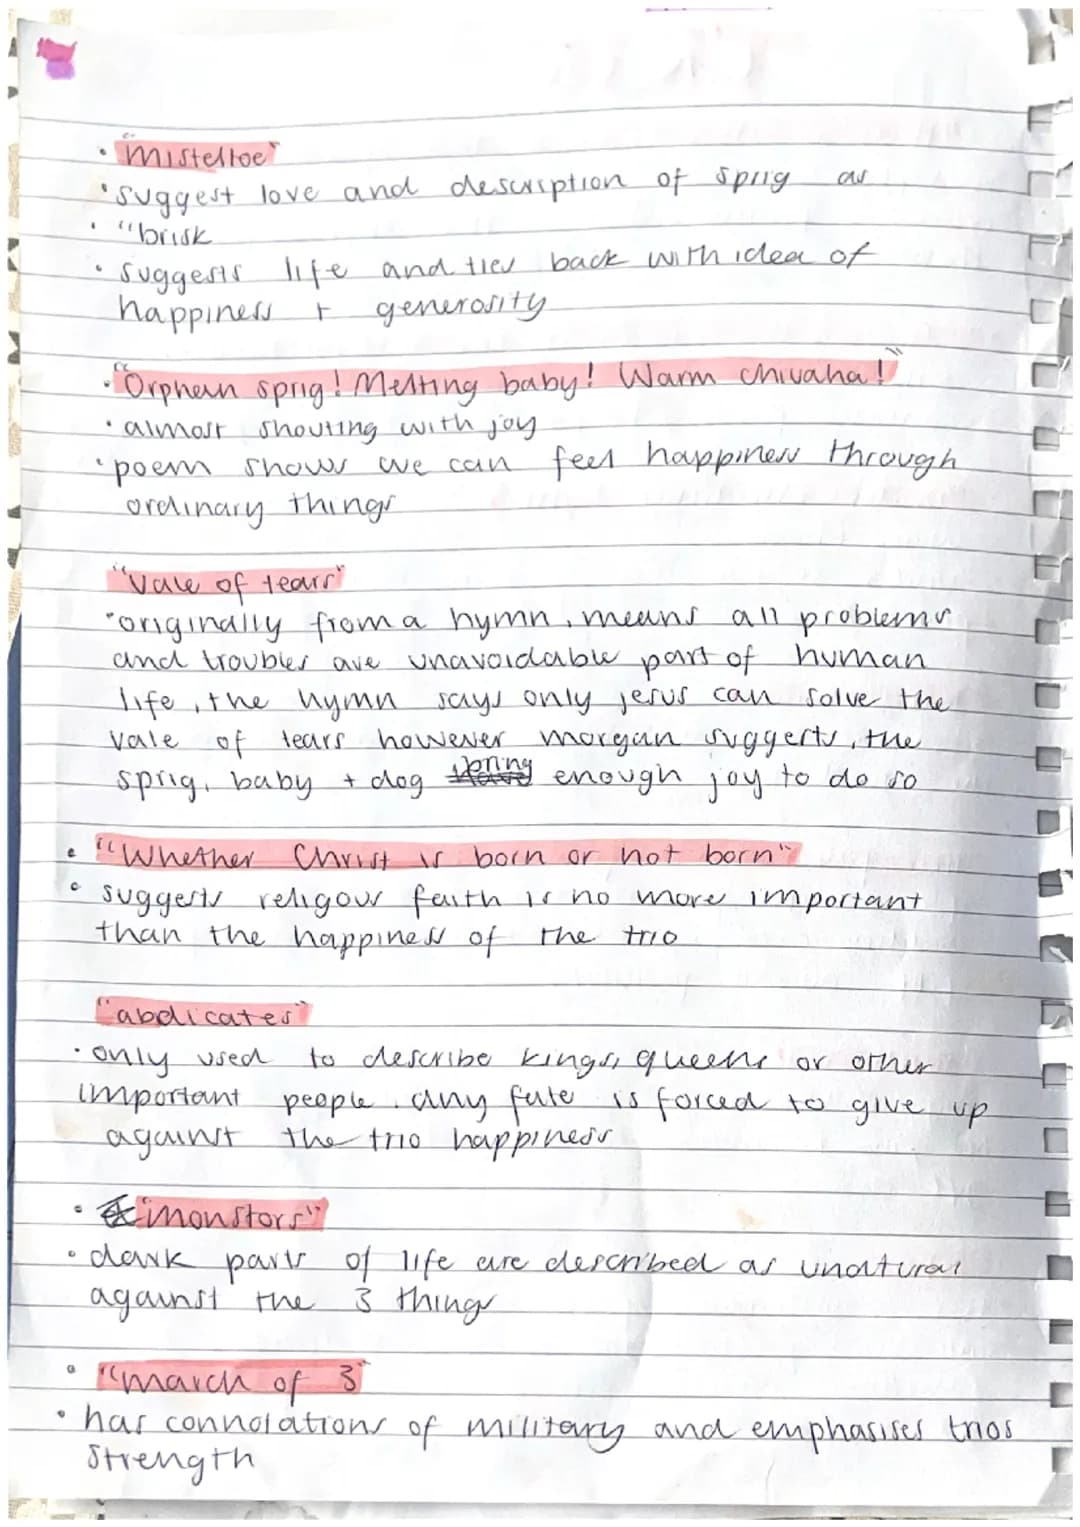 • "Misteltoe"
• suggest love and description of sprig as
• "brisk
• suggests life and ties back with idea of
happiness + generosity
• "Orphean sprig! Melting baby! Warm chivaha!"
• almost shouting with joy
• poem shows we can feel happiness through
ordinary things
"Vale of tears"
• originally from a hymn, means all problems
and troubles are unavoidable part of human
life, the hymn says only jesus can solve the
vale of tears however morgan suggests, the
sprig, baby + dog bring enough joy to do so
• "Whether Christ is born or not born"
• suggests religous faith is no more important
than the happiness of the trio
"abdicates"
• only used to describe kings, queens or other
important people. any fate is forced to give up
against the trio happiness
• "monstors"
• dark parts of life are described as unatural
against the 3 things
• "march of 3"
• has connotations of military and emphasises trios
strength